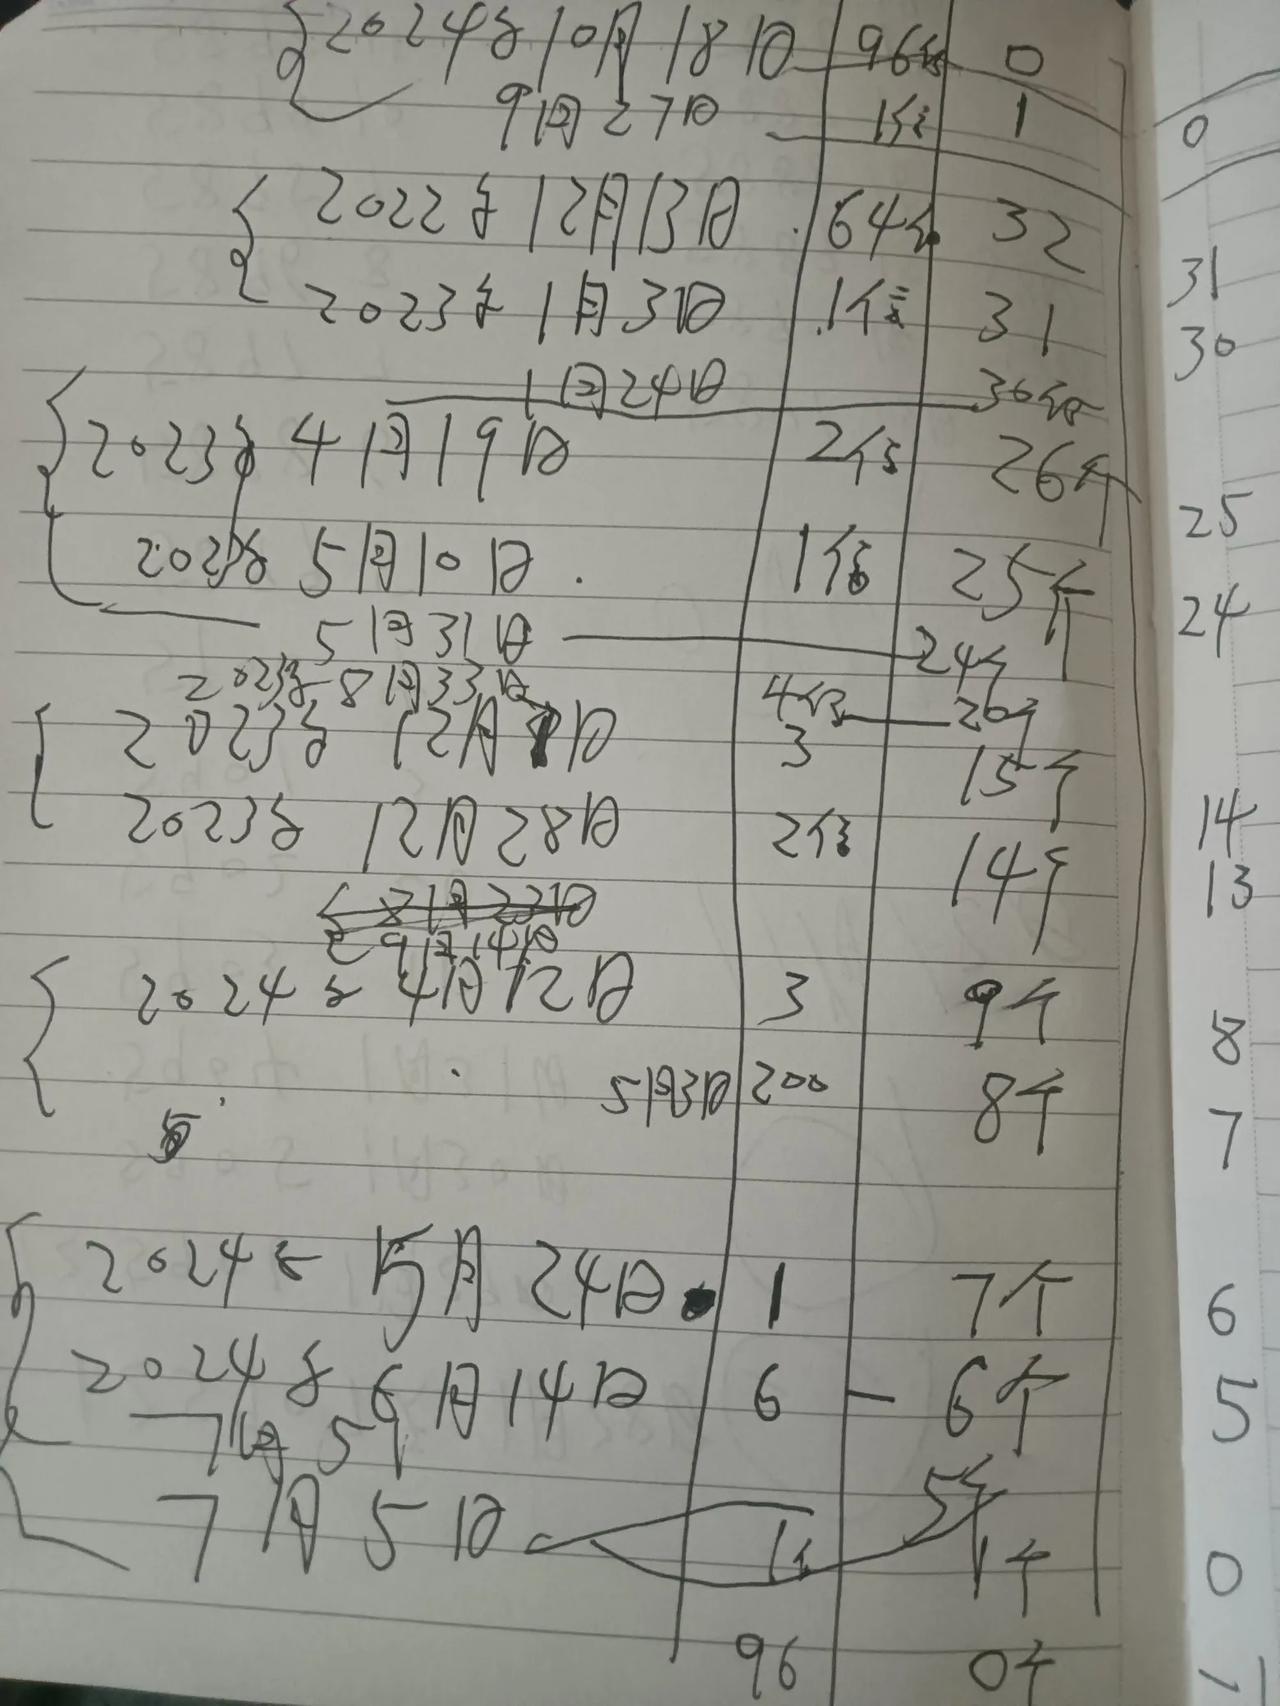 2024年10月18日 96倍 0
9月27日 1倍 1
0
2022年12月13日 64倍 32
2023年1月3日 1倍 31 31
1月24日 30倍 30
2023年4月19日 2倍 26个
2023年5月10日 1倍 25个 25
5月31日 24个 24
2023年8月33日 4倍 20个
2023年12月1日 3 15个 14
2023年12月28日 2倍 14个 13
9月14日
2024年4月12日 3 9个 8
5月3日 200 8个 7
2024年5月24日 1 7个 6
2024年6月14日 6 — 6个 5
7月5
7月5日 5个
1个 0
96 0个